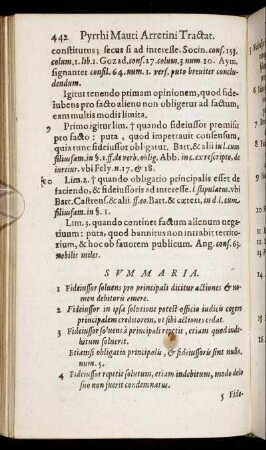 442 Pyrrhi Mauri Arretini Tractat.
constitutus; secus si ad interesse. Socin. cons. 133.
colum. 1. lib. 1. Gozad. cons. 17. colum. 3. num. 10. Aym.
signanter consil. 64. num. 1. vers. puto breuiter conclu-
dendum.
Igitur tenendo primam opinionem, quod fide-
iubens pro facto alieno non obligetur ad factum,
eam multis modis limita.
9 Primo igitur lim. † quando fideiussor promisit
pro facto: puta, quod impetrauit consensum,
quia tunc fideiussor obligatur. Bart. & alii in l. cum
filiusfam. in §. 1. ff. de verb. oblig. Abb. in c. ex rescripto, de
iureiur. vbi Fely. n. 17. & 18.
10 Lim. 2. † quando obligatio principalis esset de
faciendo, & fideiussoris ad interesse. l. stipulatus. vbi
Bart. Castrens. & alii. ff. eo. Bart. & cæteri, in d. l. cum
filiusfam. in §. 1.
Lim. 3. quando continet factum alienum nega-
tiuum: puta, quod bannitus non intrabit territo-
rium, & hoc ob fauorem publicum. Ang. cons. 63.
Nobilis miles.
SVMMARIA.
1 Fideiussor soluens pro principali dicitur actiones & no-
men debitoris emere.
2 Fideiussor in ipsa solutione potest officio iudicis cogere
principalem creditorem, vt sibi actiones cedat.
3 Fideiussor soluens à principali repetit, etiam quod inde-
bitum soluerit.
Etiamsi obligatio principalis, & fideiussoris sint nullæ.
num. 5.
4 Fideiussor repetit solutum, etiam indebitum, modo dolo
suo non fuerit condemnatus.
5 Fide-